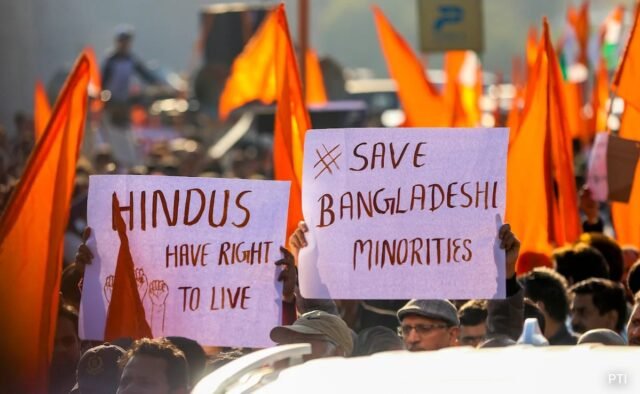 HINDUS
HAVE RIGHT
TO LIVE
# SAVE
BANGLADESHI
MINORITIES
P
PTI